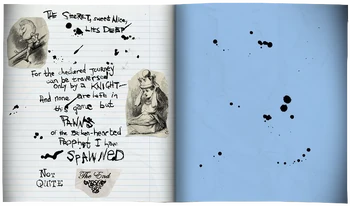 THE SECRET, sweet Alice,
LIES DEEP
For the checkered journey
can be traversed
only by a KNIGHT
And none are safe in
this game but
PAWNS
of the Broken-hearted
Prophet I have
SPAWNED
NOT
QUITE
The End